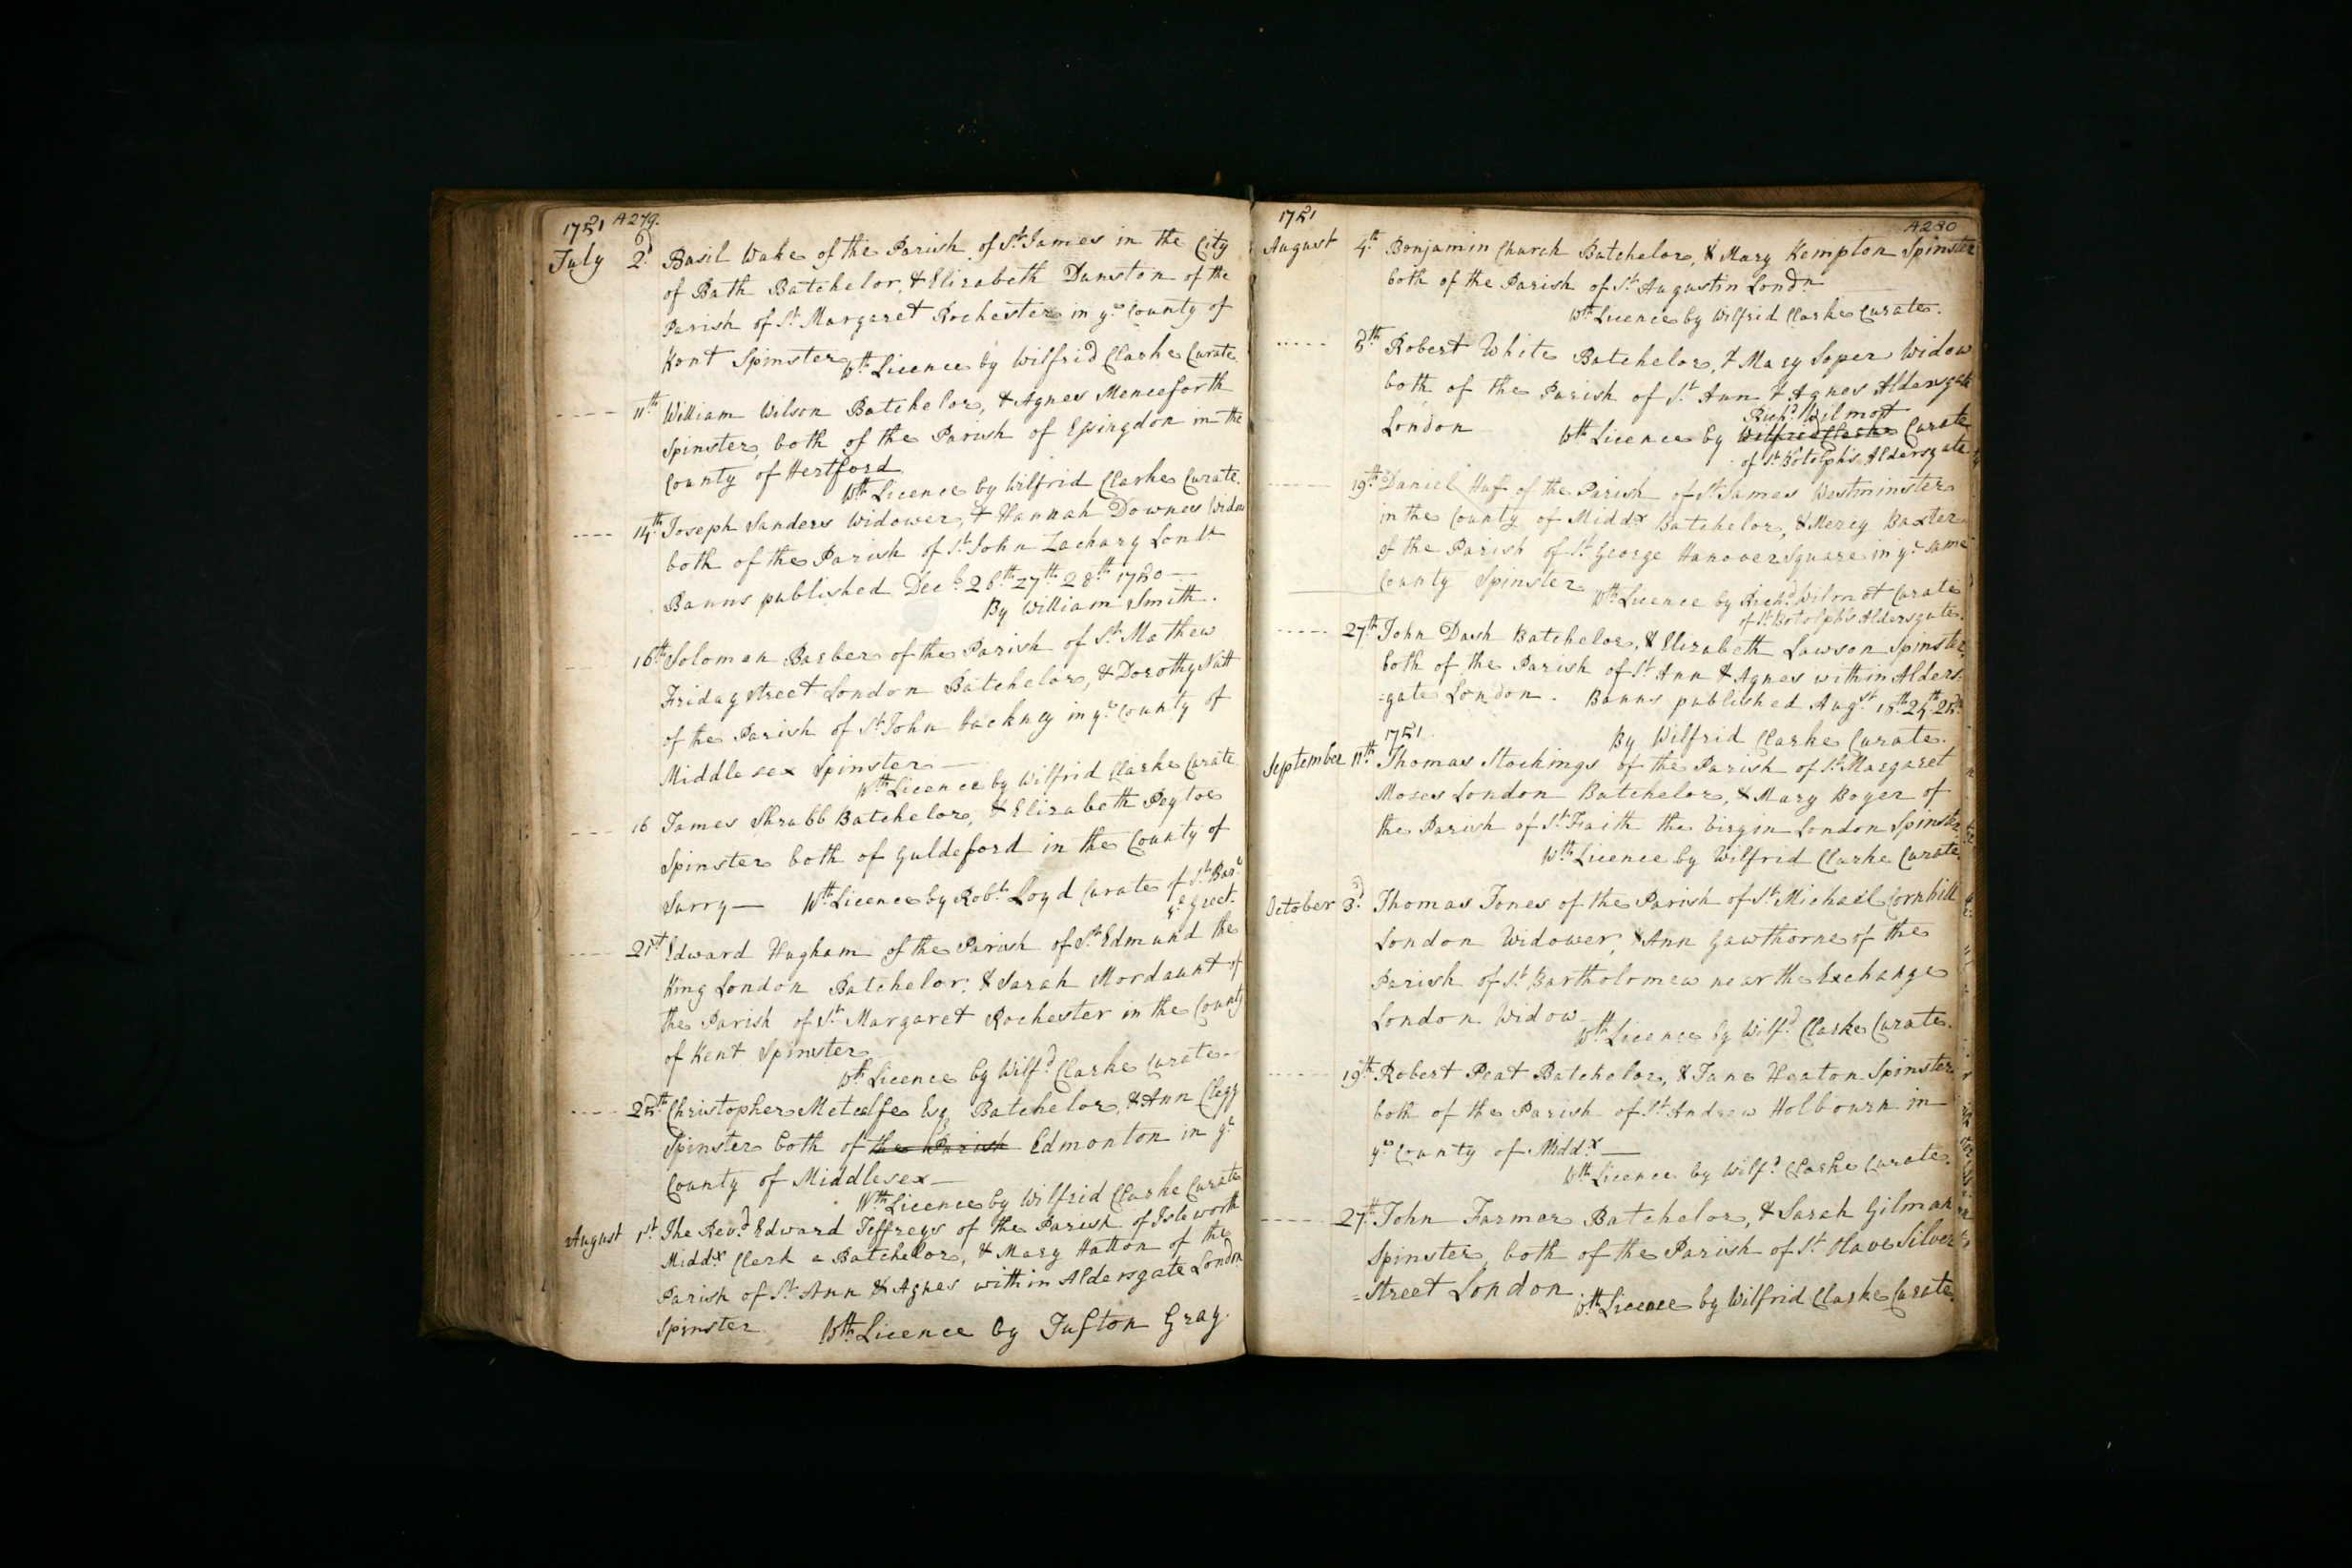 1751 A279.
July 2d Basil Wake of the Parish of St. James in the City
of Bath Batchelor, & Elizabeth Dunston of the
Parish of St. Margaret Rochester in ye County of
Kent Spinster Wth Licence by Wilfrid Clarke Curate.
---- 11th William Wilson Batchelor, & Agnes Menceforth
Spinster, both of the Parish of Essingdon in the
County of Hertford
Wth Licence by Wilfrid Clarke Curate.
---- 14th Joseph Sanders Widower, & Hannah Downes Widow
both of the Parish of St. John Zachary Lond
Banns published Decbr 26th 27th 28th 1750 —
By William Smith.
16th Solomon Barber of the Parish of St. Mathew
Friday Street London Batchelor, & Dorothy Nutt
of the Parish of St. John Hackney in ye County of
Middlesex Spinster —
Wth Licence by Wilfrid Clarke Curate
---- 16 James Shrubb Batchelor, & Elizabeth Peytoe
Spinster both of Guldeford in the County of
Surry — Wth Licence by Robt. Loyd Curate of St. Bar.
ye Greet.
---- 21st Edward Hugham of the Parish of St. Edmund the
King London Batchelor, & Sarah Mordaunt of
the Parish of St. Margaret Rochester in the County
of Kent Spinster
Wth Licence by Wilfd Clarke Curate.
---- 25th Christopher Metcalfe Esq Batchelor, & Ann Clegg
Spinster both of the Parish Edmonton in ye
County of Middlesex —
Wth Licence by Wilfrid Clarke Curate
August 1st The Revd Edward Jeffreys of the Parish of Isleworth
Middx Clerk a Batchelor, & Mary Hatton of the
Parish of St. Ann & Agnes within Aldersgate London
Spinster Wth Licence by Tufton Gray.
1751
A280
August 4th Benjamin Church Batchelor, & Mary Kempton Spinster
both of the Parish of St. Augustin Londn
Wth Licence by Wilfrid Clarke Curate.
----- 5th Robert White Batchelor, & Mary Soper Widow
both of the Parish of St. Ann & Agnes Aldersgate
Richd Wilmot
London Wth Licence by Wilfrid Clarke Curate
of St. Botolph's Aldersgate
----- 19th Daniel Huff of the Parish of St. James Westminster
in the County of Middx Batchelor, & Mercy Baxter
of the Parish of St. George Hanover Square in ye same
County Spinster Wth Licence by Richd Wilmot Curate
of St. Botolph's Aldersgate.
----- 27th John Dash Batchelor, & Elizabeth Lawson Spinster,
both of the Parish of St. Ann & Agnes within Alders-
=gate London. Banns published Augst 18th 24th 25th
1751 By Wilfrid Clarke Curate.
September 11th Thomas Stockings of the Parish of St. Margaret
Moses London Batchelor, & Mary Boyer of
the Parish of St. Faith the Virgin London Spinster
Wth Licence by Wilfrid Clarke Curate.
October 3d Thomas Jones of the Parish of St. Michael Cornhill
London Widower, & Ann Gawthorne of the
Parish of St. Bartholomew near the Exchange
London Widow
Wth Licence by Wilfd Clarke Curate.
----- 19th Robert Peat Batchelor, & Jane Heaton Spinster
both of the Parish of St. Andrew Holbourn in
ye County of Middx —
Wth Licence by Wilfd Clarke Curate.
----- 27th John Farmer Batchelor, & Sarah Gilman
Spinster, both of the Parish of St. Olave Silver
=Street London
Wth Licence by Wilfrid Clarke Curate.